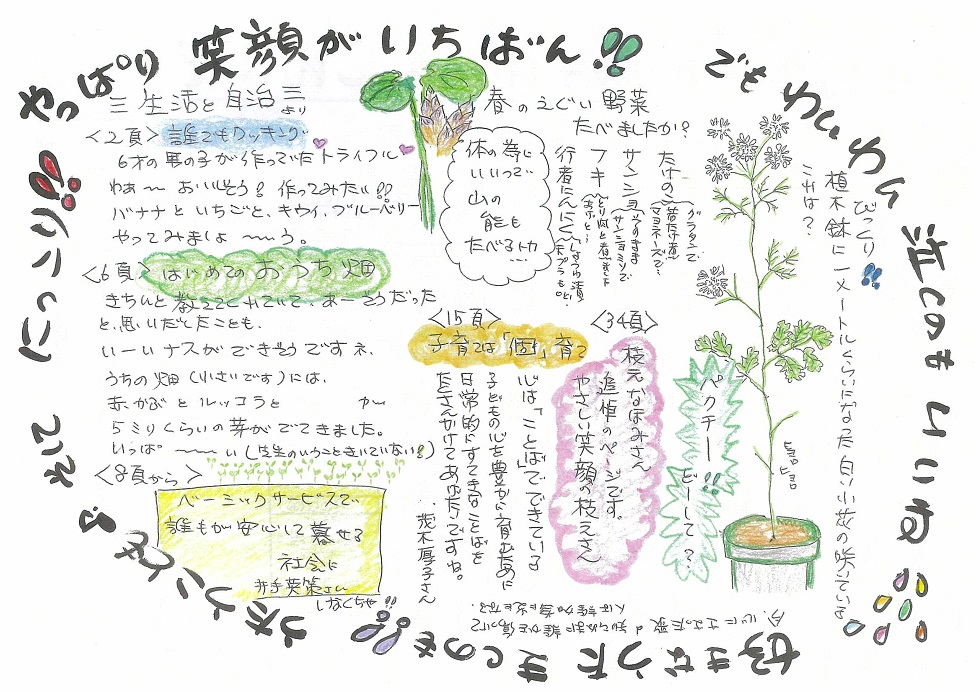 やっぱり 笑顔が いちばん!!
でも わいわい 泣くのも いいね
好きなうた きくのも!!
うたうことも♪
それと にっこり!!
三 生活と自治 三 より
<2頁> 誰でもクッキング
6才の男の子が作っていたトライフル
わぁ〜 おいしそう! 作ってみたい!!
バナナと いちごと、キウイ、ブルーベリー
やってみましょ〜う。
<6頁> はじめてのおうち畑
きちんと教えてくれていて、あーそうだった
と、思いだしたことも、
いーいナスができそうですネ、
うちの畑(小さいです)には、
赤かぶと ルッコラと
5ミリくらいの芽がでてきました。
いっぱ〜い(先生のいうこときいていない?)
<8頁から>
ベーシックサービスで
誰もが安心して暮せる
社会に
井手英策さん
しなくちゃ!!
春のえぐい野菜
たべましたか?
たけのこ
グラタンで
マヨネーズで
サンショ
フキ
行者にんにく
体の為に
いいって
山の
熊も
たべるトカ
…
<15頁>
子育ては「個」育て
心は「ことば」でできている
子どもの心を豊かに育むために
日常的にすてきなことばを
たくさんかけてあげたいですね。
茂木厚子さん
<34頁>
枝元なほみさん
追悼のページです。
やさしい笑顔の枝元さん
パクチー!!
どーして?
びっくり!!
植木鉢に一メートルくらいになった白い小花の咲いている
これは?
ヒョロ
ヒョロ